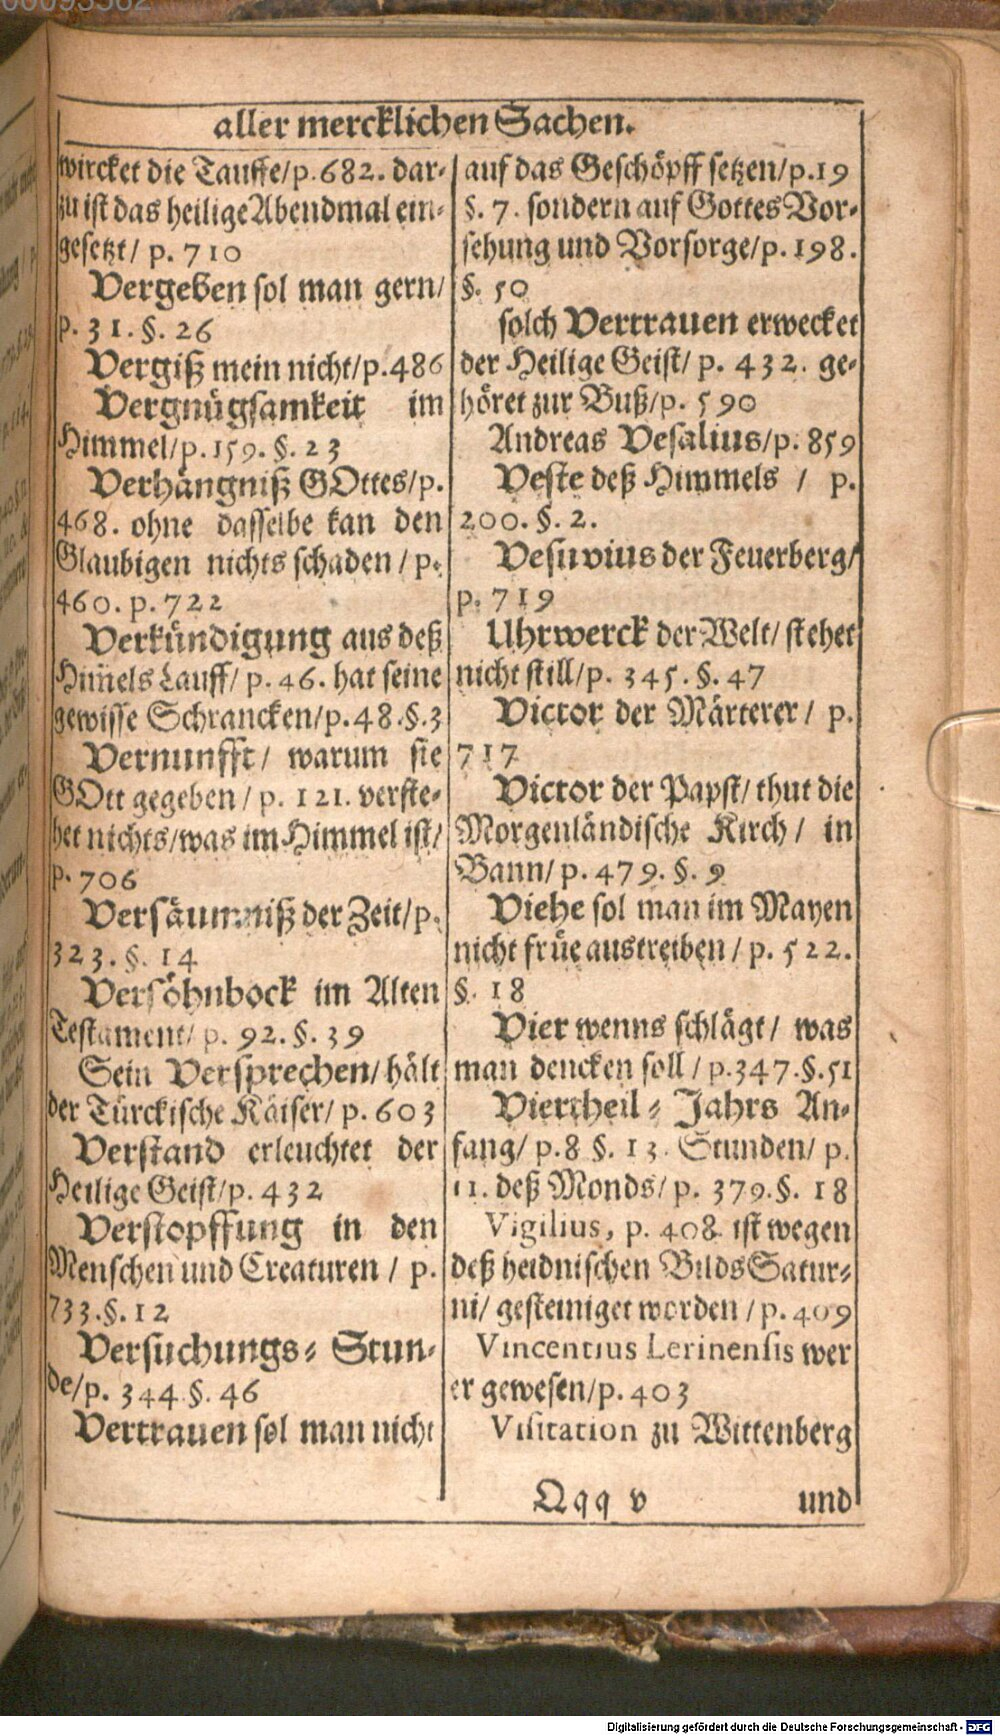 aller mercklichen Sachen.
wircket die Tauffe/p.682. dar-
zu ist das heilige Abendmal ein-
gesetzt/ p. 710
Vergeben sol man gern/
p. 31. §. 26
Vergiß mein nicht/p.486
Vergnügsamkeit im
Himmel/p.159. §. 23
Verhängniß GOttes/p.
468. ohne dasselbe kan den
Glaubigen nichts schaden / p.
460. p. 722
Verkündigung aus deß
Him̃els Lauff/ p. 46. hat seine
gewisse Schrancken/p.48.§.3
Vernunfft/ warum sie
GOtt gegeben / p. 121. verste-
het nichts/was im Himmel ist/
p. 706
Versäumniß der Zeit/p.
323. §. 14
Versöhnbock im Alten
Testament/ p. 92. §. 39
Sein Versprechen/hält
der Türckische Käiser/ p. 603
Verstand erleuchtet der
Heilige Geist/p. 432
Verstopffung in den
Menschen und Creaturen / p.
733.§. 12
Versuchungs-Stun-
de/p. 344 §. 46
Vertrauen sol man nicht
auf das Geschöpff setzen/p.19
§. 7. sondern auf Gottes Vor-
sehung und Vorsorge/p. 198.
§. 50
solch Vertrauen erwecket
der Heilige Geist/ p. 432. ge-
höret zur Buß/p. 590
Andreas Vesalius/p. 859
Veste deß Himmels / p.
200. §. 2.
Vesuvius der Feuerberg/
p. 719
Uhrwerck der Welt/ stehet
nicht still/p. 345. §. 47
Victor der Märterer / p.
717
Victor der Papst/ thut die
Morgenländische Kirch / in
Bann/ p. 479. §. 9
Viehe sol man im Mayen
nicht früe austreiben / p. 522.
§. 18
Vier wenns schlägt/ was
man dencken soll / p.347.§.51
Viertheil-Jahrs An-
fang/ p.8 §. 13. Stunden/ p.
11. deß Monds/ p. 379.§. 18
Vigilius, p. 408 ist wegen
deß heidnischen Bilds Satur-
ni/ gesteiniget worden / p. 409
Vincentius Lerinensis wer
er gewesen/p. 403
Visitation zu Wittenberg
Qqq v und
Digitalisierung gefördert durch die Deutsche Forschungsgemeinschaft - DFG